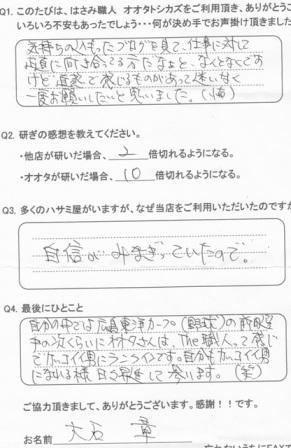 Q1. このたびは、はさみ職人 オオタトシカズをご利用頂き、ありがとうご
いろいろ不安もあったでしょう･･･何が決め手でお声掛け頂きました
気持ちの入ったブログを見て、仕事に対して
真直に向き合ってる方だなぁと、なんとなくです
けど直感で感じるものがあって迷いなく
一度お願いしたいと思いました。
Q2. 研ぎの感想を教えてください。
・他店が研いだ場合、 2 倍切れるようになる。
・オオタが研いだ場合、 10 倍切れるようになる。
Q3. 多くのハサミ屋がいますが、なぜ当店をご利用いただいたのですか
自信がみなぎっていたので。
Q4. 最後にひとこと
自分の中では広島東洋カープ(野球)の前田
の次くらいにオオタさんは、The 職人。って感じ
でカッコイイ男にランクインです。自分もカッコイイ男
になれる様 日々精進して参ります。(笑)
ご協力頂きまして、ありがとうございます。感謝！！です。
お名前 大石 章